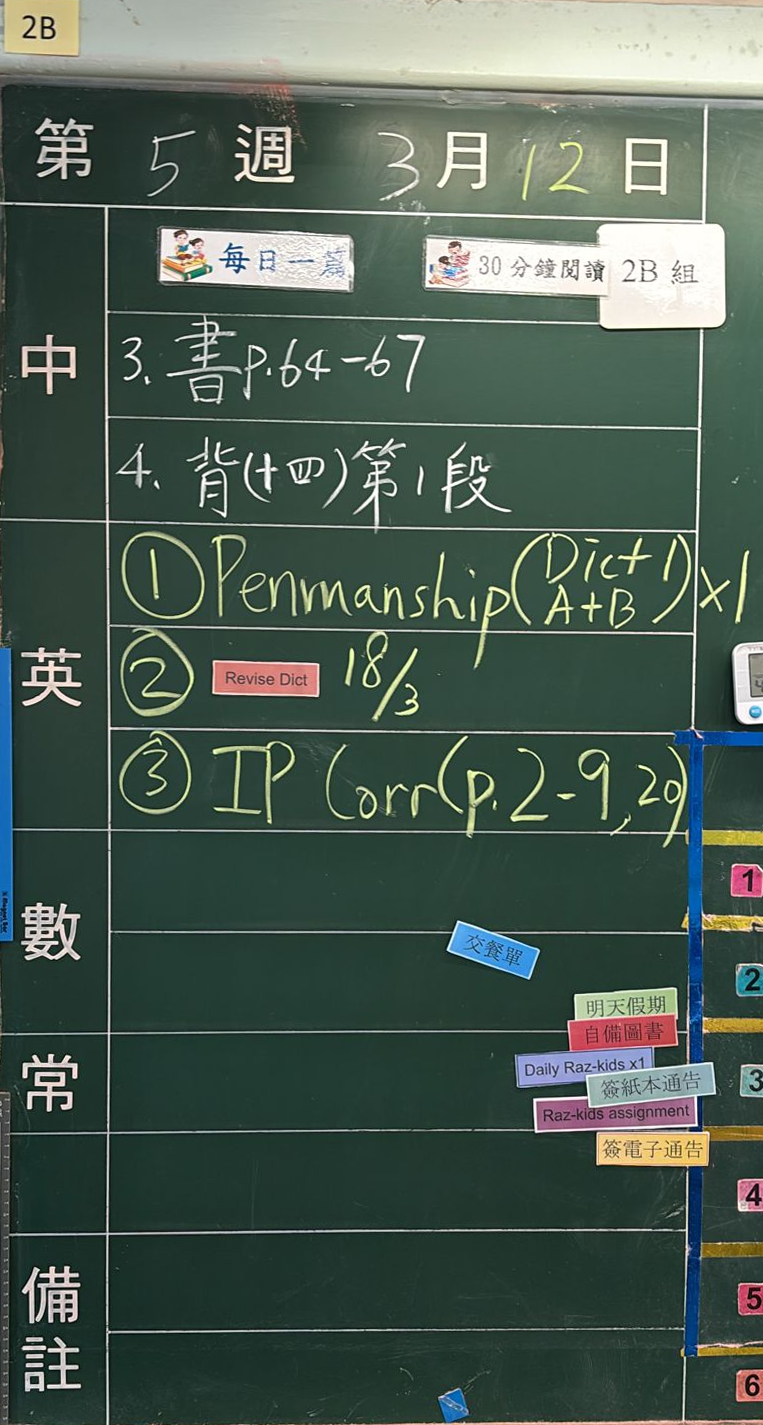 2B
第 5 週 3月12日
每日一篇 30分鐘閱讀 2B 組
中
3. 書p.64-67
4. 背(十四)第1段
英
① Penmanship(Dict 1 A+B)×1
② Revise Dict 18/3
③ IP Corr(p.2-9,20)
數
交餐單
明天假期
自備圖書
常
Daily Raz-kids x1
簽紙本通告
Raz-kids assignment
簽電子通告
備註
1
2
3
4
5
6